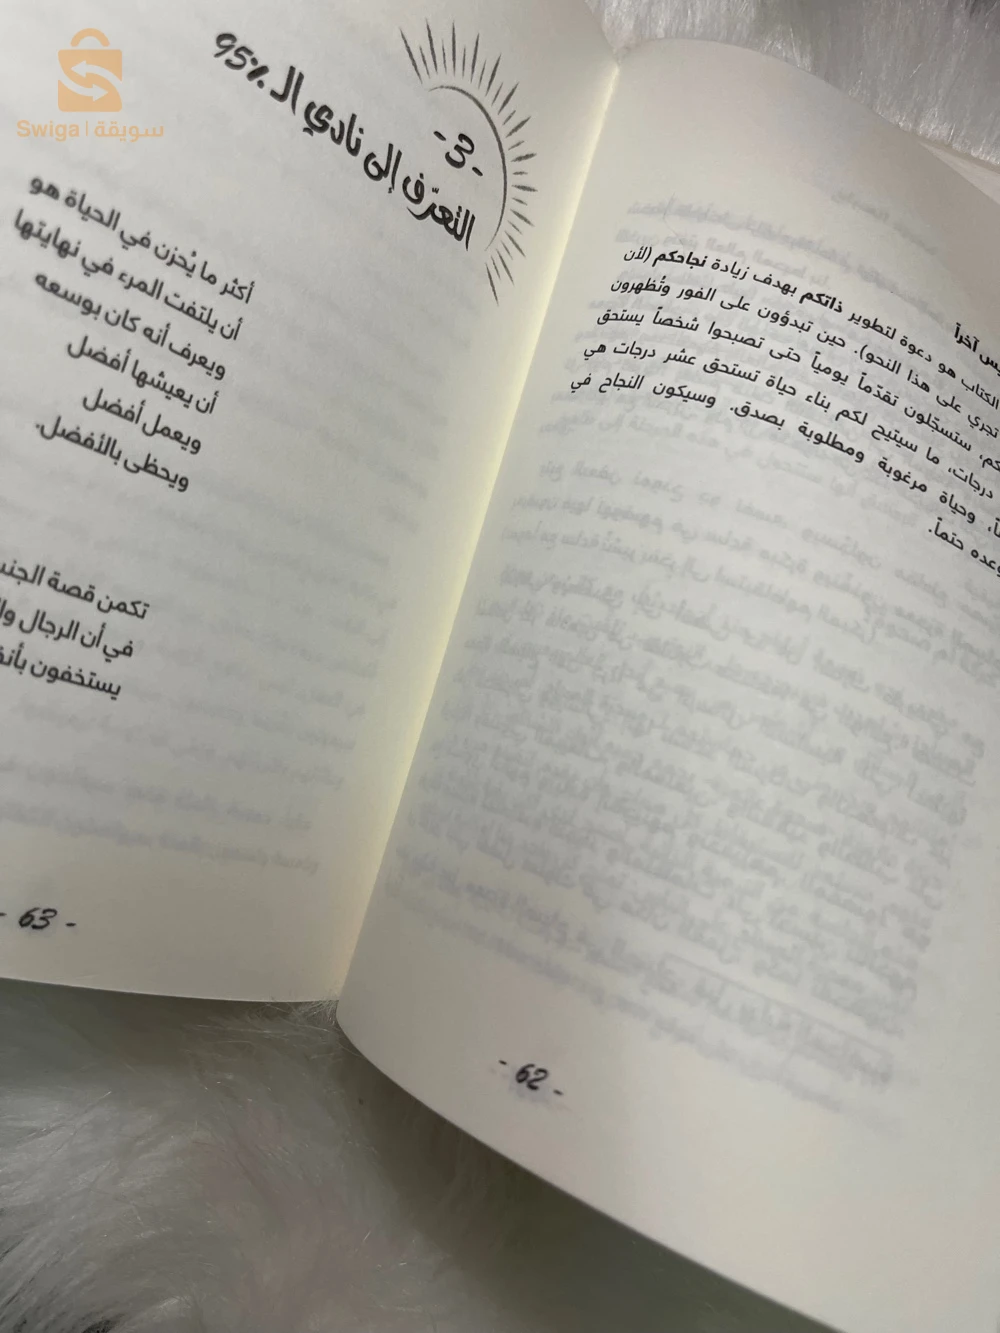 Swiga | سويقة
يس آخراً
الكتاب هو دعوة لتطوير ذاتكم بهدف زيادة نجاحكم (لأن
تجري على هذا النحو). حين تبدؤون على الفور وتُظهرون
كم، ستسجّلون تقدّماً يومياً حتى تصبحوا شخصاً يستحق
درجات، ما سيتيح لكم بناء حياة تستحق عشر درجات هي
اً، وحياة مرغوبة ومطلوبة بصدق. وسيكون النجاح في
وعده حتماً.
- 62 -
-3-
التعرّف إلى نادي الـ 95%
أكثر ما يُحزن في الحياة هو
أن يلتفت المرء في نهايتها
ويعرف أنه كان بوسعه
أن يعيشها أفضل
ويعمل أفضل
ويحظى بالأفضل.
تكمن قصة الجنس
في أن الرجال وال
يستخفون بأنف
- 63 -